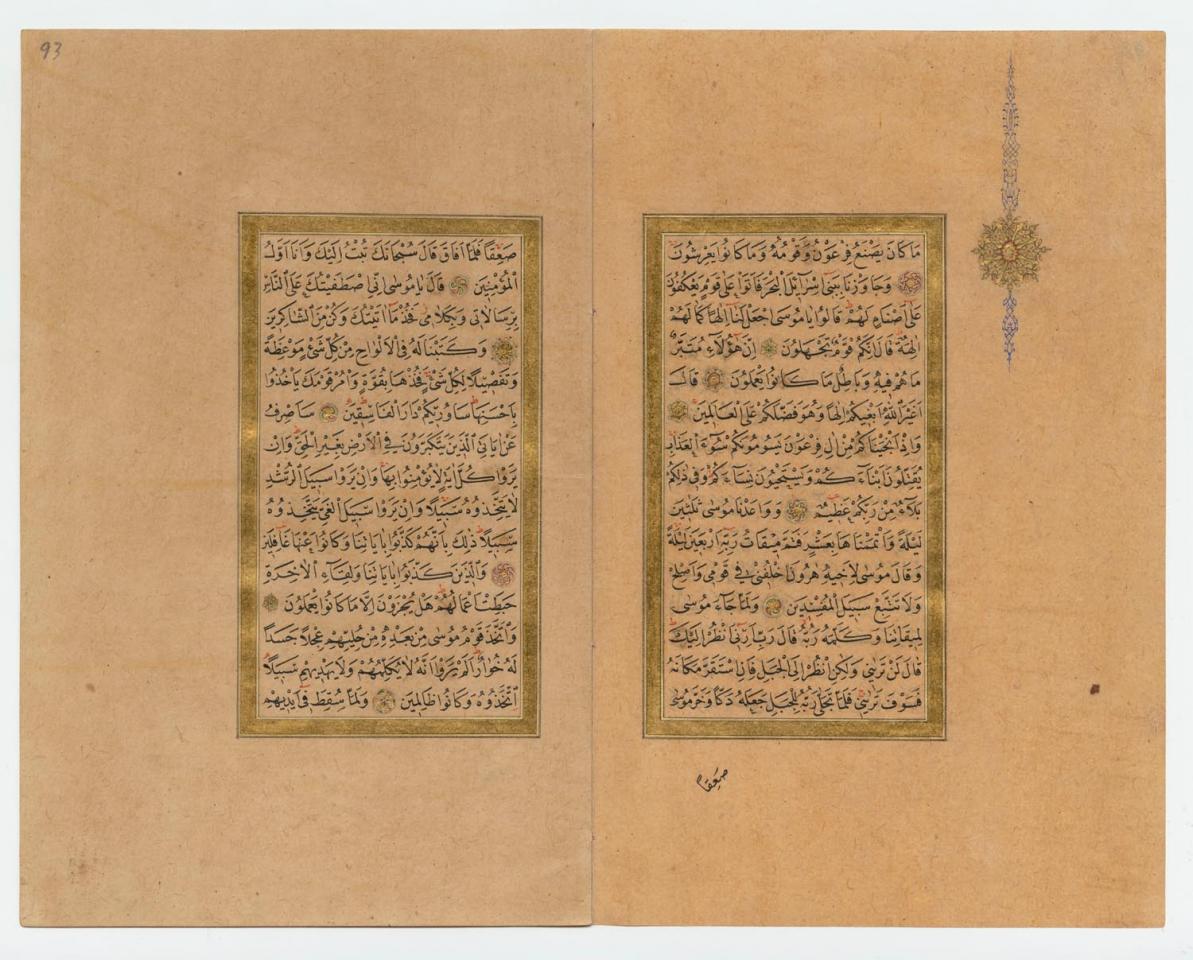 مَا كَانَ يَصْنَعُ فِرْعَوْنُ وَقَوْمُهُ وَمَا كَانُوا يَعْرِشُونَ
وَجَاوَزْنَا بِبَنِى اِسْرَائِلَ الْبَحْرَ فَاَتَوْا عَلٰى قَوْمٍ يَعْكُفُونَ
عَلٰى اَصْنَامٍ لَهُمْ قَالُوا يَا مُوسٰى اجْعَلْ لَنَا اِلٰهًا كَمَا لَهُمْ
اٰلِهَةٌ قَالَ اِنَّكُمْ قَوْمٌ تَجْهَلُونَ اِنَّ هٰؤُلَاءِ مُتَبَّرٌ
مَا هُمْ فِيهِ وَبَاطِلٌ مَا كَانُوا يَعْمَلُونَ قَالَ
اَغَيْرَ اللّٰهِ اَبْغِيكُمْ اِلٰهًا وَهُوَ فَضَّلَكُمْ عَلَى الْعَالَمِينَ
وَاِذْ اَنْجَيْنَاكُمْ مِنْ اٰلِ فِرْعَوْنَ يَسُومُونَكُمْ سُوءَ الْعَذَابِ
يُقَتِّلُونَ اَبْنَاءَكُمْ وَيَسْتَحْيُونَ نِسَاءَكُمْ وَفِى ذٰلِكُمْ
بَلَاءٌ مِنْ رَبِّكُمْ عَظِيمٌ وَوَاعَدْنَا مُوسٰى ثَلٰثِينَ
لَيْلَةً وَاَتْمَمْنَاهَا بِعَشْرٍ فَتَمَّ مِيقَاتُ رَبِّهِ اَرْبَعِينَ لَيْلَةً
وَقَالَ مُوسٰى لِاَخِيهِ هٰرُونَ اخْلُفْنِى فِى قَوْمِى وَاَصْلِحْ
وَلَا تَتَّبِعْ سَبِيلَ الْمُفْسِدِينَ وَلَمَّا جَاءَ مُوسٰى
لِمِيقَاتِنَا وَكَلَّمَهُ رَبُّهُ قَالَ رَبِّ اَرِنِى اَنْظُرْ اِلَيْكَ
قَالَ لَنْ تَرٰينِى وَلٰكِنِ انْظُرْ اِلَى الْجَبَلِ فَاِنِ اسْتَقَرَّ مَكَانَهُ
فَسَوْفَ تَرٰينِى فَلَمَّا تَجَلّٰى رَبُّهُ لِلْجَبَلِ جَعَلَهُ دَكًّا وَخَرَّ مُوسٰى
صَعِقًا
93
صَعِقًا فَلَمَّا اَفَاقَ قَالَ سُبْحَانَكَ تُبْتُ اِلَيْكَ وَاَنَا اَوَّلُ
الْمُؤْمِنِينَ قَالَ يَا مُوسٰى اِنِّى اصْطَفَيْتُكَ عَلَى النَّاسِ
بِرِسَالَاتِى وَبِكَلَامِى فَخُذْ مَا اٰتَيْتُكَ وَكُنْ مِنَ الشَّاكِرِينَ
وَكَتَبْنَا لَهُ فِى الْاَلْوَاحِ مِنْ كُلِّ شَىْءٍ مَوْعِظَةً
وَتَفْصِيلًا لِكُلِّ شَىْءٍ فَخُذْهَا بِقُوَّةٍ وَاْمُرْ قَوْمَكَ يَاْخُذُوا
بِاَحْسَنِهَا سَاُورِيكُمْ دَارَ الْفَاسِقِينَ سَاَصْرِفُ
عَنْ اٰيَاتِىَ الَّذِينَ يَتَكَبَّرُونَ فِى الْاَرْضِ بِغَيْرِ الْحَقِّ وَاِنْ
يَرَوْا كُلَّ اٰيَةٍ لَا يُؤْمِنُوا بِهَا وَاِنْ يَرَوْا سَبِيلَ الرُّشْدِ
لَا يَتَّخِذُوهُ سَبِيلًا وَاِنْ يَرَوْا سَبِيلَ الْغَىِّ يَتَّخِذُوهُ
سَبِيلًا ذٰلِكَ بِاَنَّهُمْ كَذَّبُوا بِاٰيَاتِنَا وَكَانُوا عَنْهَا غَافِلِينَ
وَالَّذِينَ كَذَّبُوا بِاٰيَاتِنَا وَلِقَاءِ الْاٰخِرَةِ
حَبِطَتْ اَعْمَالُهُمْ هَلْ يُجْزَوْنَ اِلَّا مَا كَانُوا يَعْمَلُونَ
وَاتَّخَذَ قَوْمُ مُوسٰى مِنْ بَعْدِهِ مِنْ حُلِيِّهِمْ عِجْلًا جَسَدًا
لَهُ خُوَارٌ اَلَمْ يَرَوْا اَنَّهُ لَا يُكَلِّمُهُمْ وَلَا يَهْدِيهِمْ سَبِيلًا
اتَّخَذُوهُ وَكَانُوا ظَالِمِينَ وَلَمَّا سُقِطَ فِى اَيْدِيهِمْ